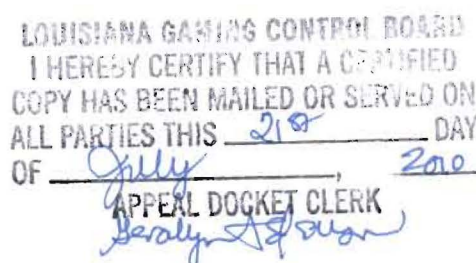 LOUISIANA GAMING CONTROL BOARD
I HEREBY CERTIFY THAT A CERTIFIED
COPY HAS BEEN MAILED OR SERVED ON
ALL PARTIES THIS 21st DAY
OF July, 2010
APPEAL DOCKET CLERK
Geralyn A.